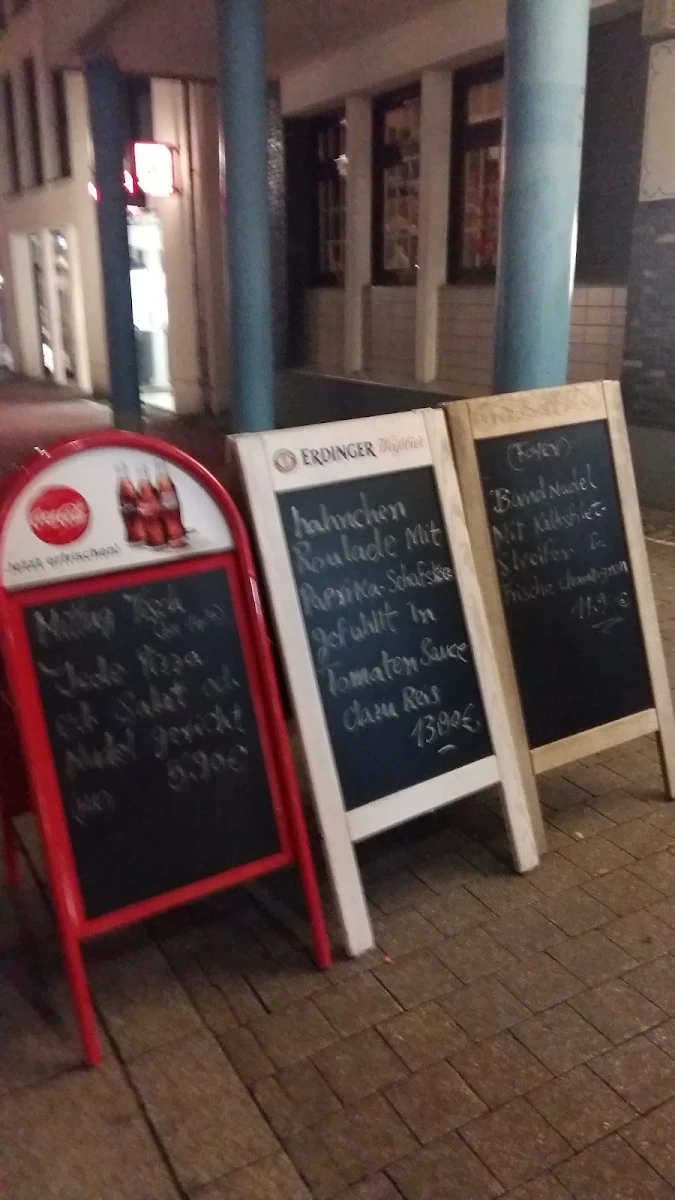 Coca-Cola
Jetzt erfrischen!
Mittag Tisch
Jede Pizza
od. Salat od.
Nudel gericht
9.90€
ERDINGER Weißbier
hahnchen
Roulade Mit
Paprika-Schafskäse
gefühllt In
Tomaten Sauce
dazu Reis
13.90€
Band Nudel
Mit Kalbsfilet-
Streifen &
frische champignon
11.9 €